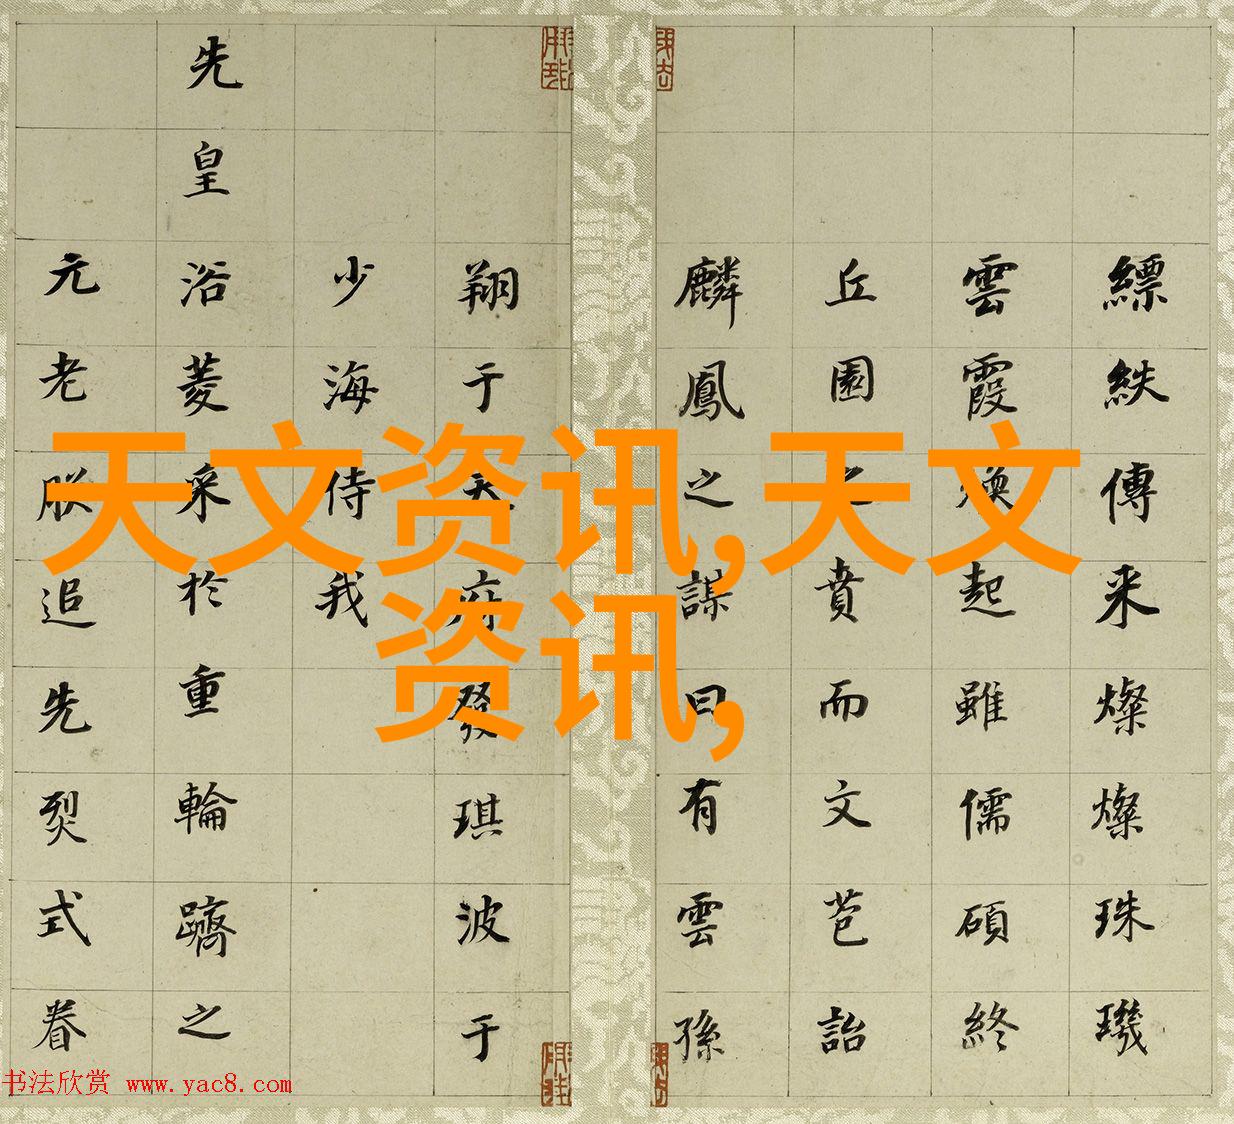 縹紩傳来燦燦珠璣
雲霞煥起雖儒碩終
丘園之賁而文芑詒
麟鳳之謀曰有雲孫
翔于天府發琪波于
少海侍我
先皇浴菱采於重輪躋之
元老朕追先烈式眷
天文资讯,天文
资讯,
书法欣赏 www.yac8.com